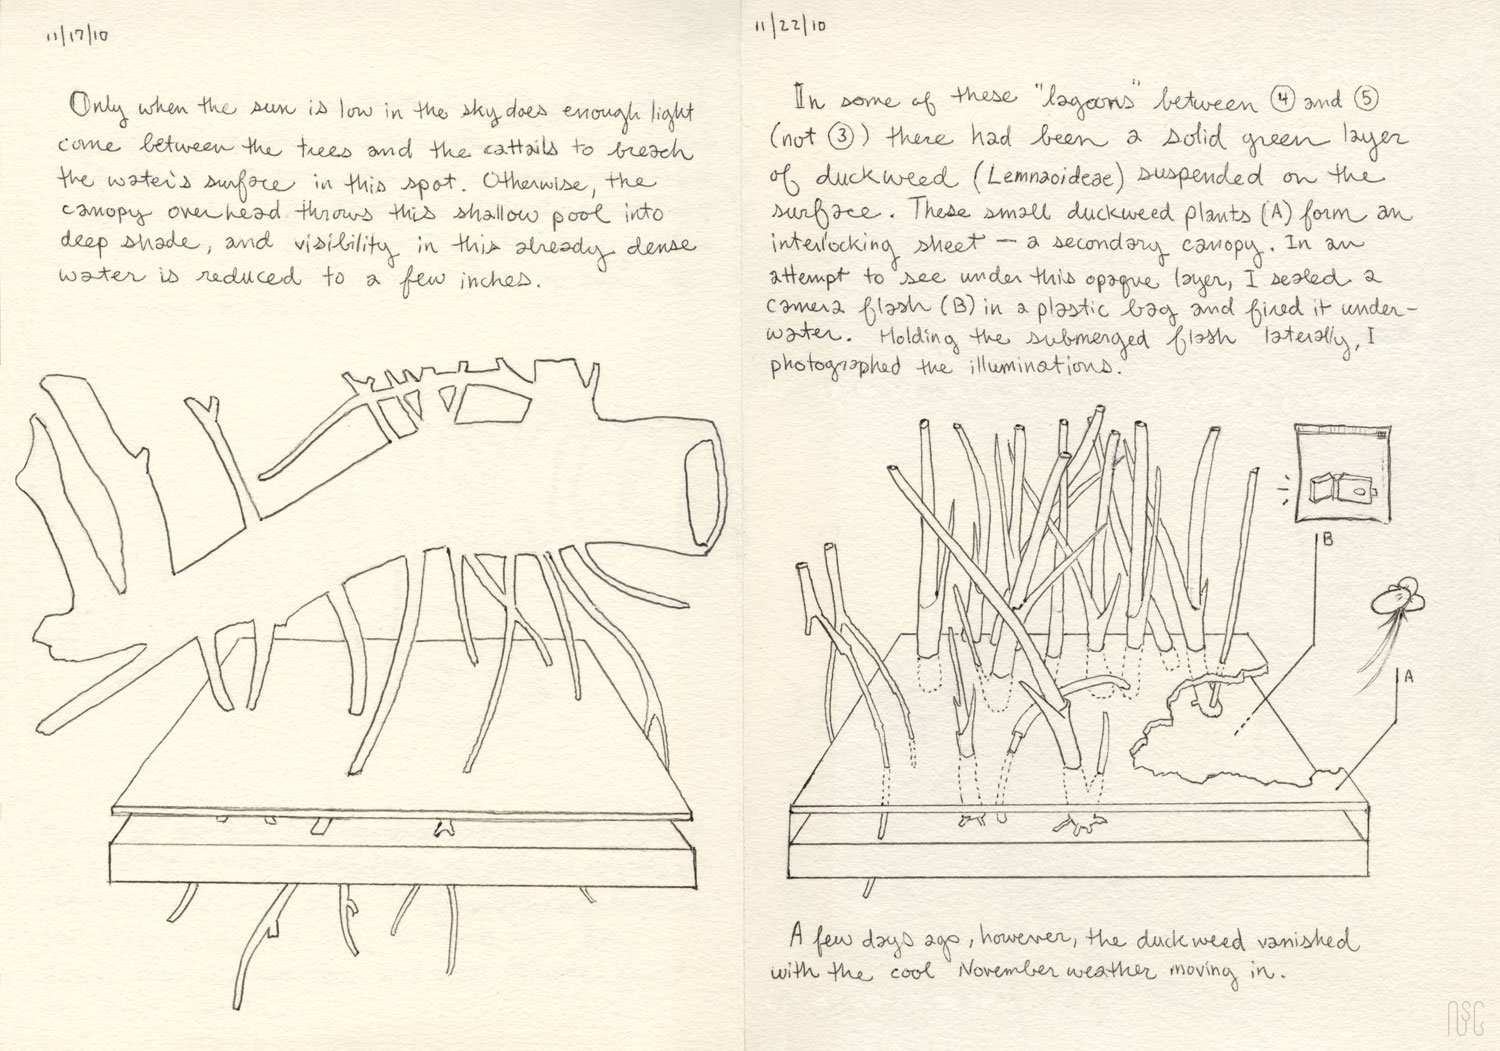 11/17/10
Only when the sun is low in the sky does enough light
come between the trees and the cattails to breach
the water's surface in this spot. Otherwise, the
canopy overhead throws this shallow pool into
deep shade, and visibility in this already dense
water is reduced to a few inches.
11/22/10
In some of these "lagoons" between ④ and ⑤
(not ③) there had been a solid green layer
of duckweed (Lemnaoideae) suspended on the
surface. These small duckweed plants (A) form an
interlocking sheet — a secondary canopy. In an
attempt to see under this opaque layer, I sealed a
camera flash (B) in a plastic bag and fired it under-
water. Holding the submerged flash laterally, I
photographed the illuminations.
B
A
A few days ago, however, the duckweed vanished
with the cool November weather moving in.